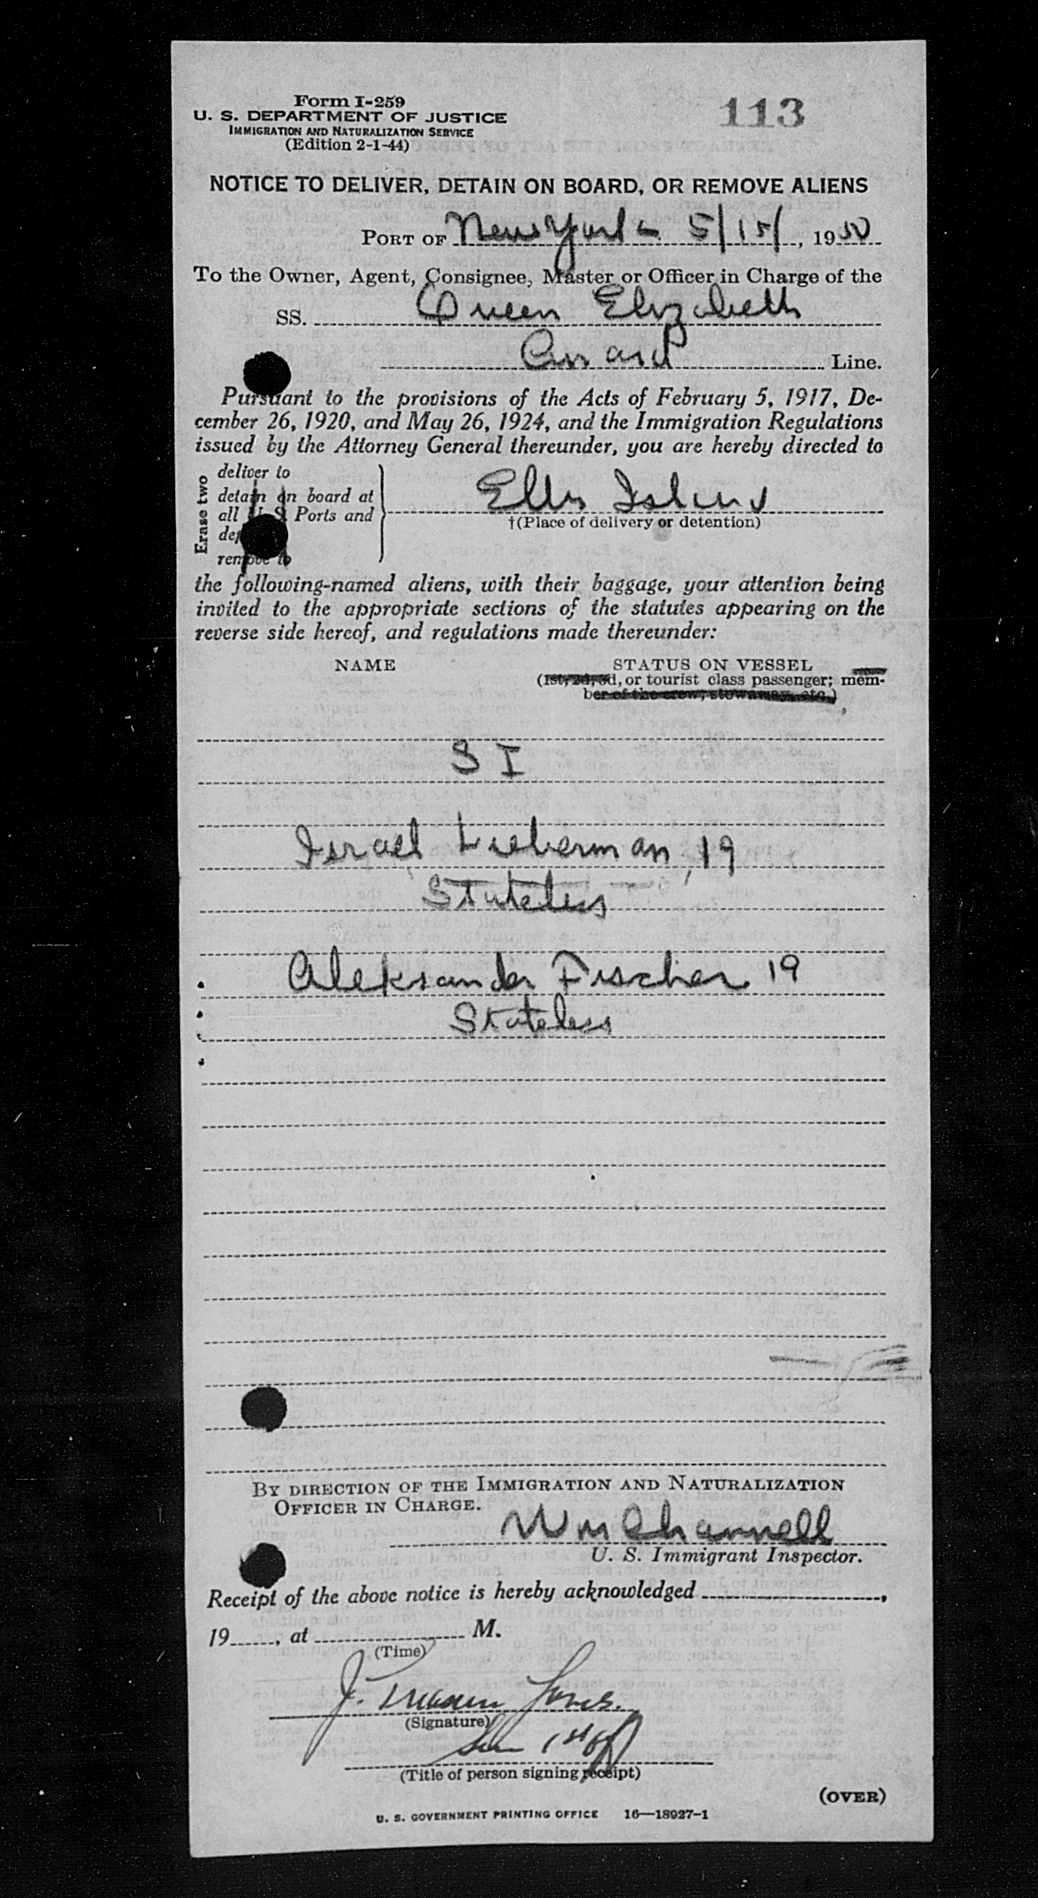 Form I-259
U. S. DEPARTMENT OF JUSTICE
IMMIGRATION AND NATURALIZATION SERVICE
(Edition 2-1-44)
113
NOTICE TO DELIVER, DETAIN ON BOARD, OR REMOVE ALIENS
PORT OF New York 5/15/, 1950
To the Owner, Agent, Consignee, Master or Officer in Charge of the
SS. Queen Elizabeth
Cunard Line.
Pursuant to the provisions of the Acts of February 5, 1917, De-
cember 26, 1920, and May 26, 1924, and the Immigration Regulations
issued by the Attorney General thereunder, you are hereby directed to
Erase two
deliver to
detain on board at
all U. S. Ports and
remove to
Ellis Island
†(Place of delivery or detention)
the following-named aliens, with their baggage, your attention being
invited to the appropriate sections of the statutes appearing on the
reverse side hereof, and regulations made thereunder:
NAME STATUS ON VESSEL
(1st, 2d, 3d, or tourist class passenger; mem-
ber of the crew; stowaway, etc.)
S I
Israel Lieberman, 19
Stateless
Aleksander Fischer 19
Stateless
BY DIRECTION OF THE IMMIGRATION AND NATURALIZATION
OFFICER IN CHARGE.
Wm Channell
U. S. Immigrant Inspector.
Receipt of the above notice is hereby acknowledged ,
19 , at M.
(Time)
J. Jones.
(Signature)
1st Off
(Title of person signing receipt)
(OVER)
U. S. GOVERNMENT PRINTING OFFICE 16—18927-1